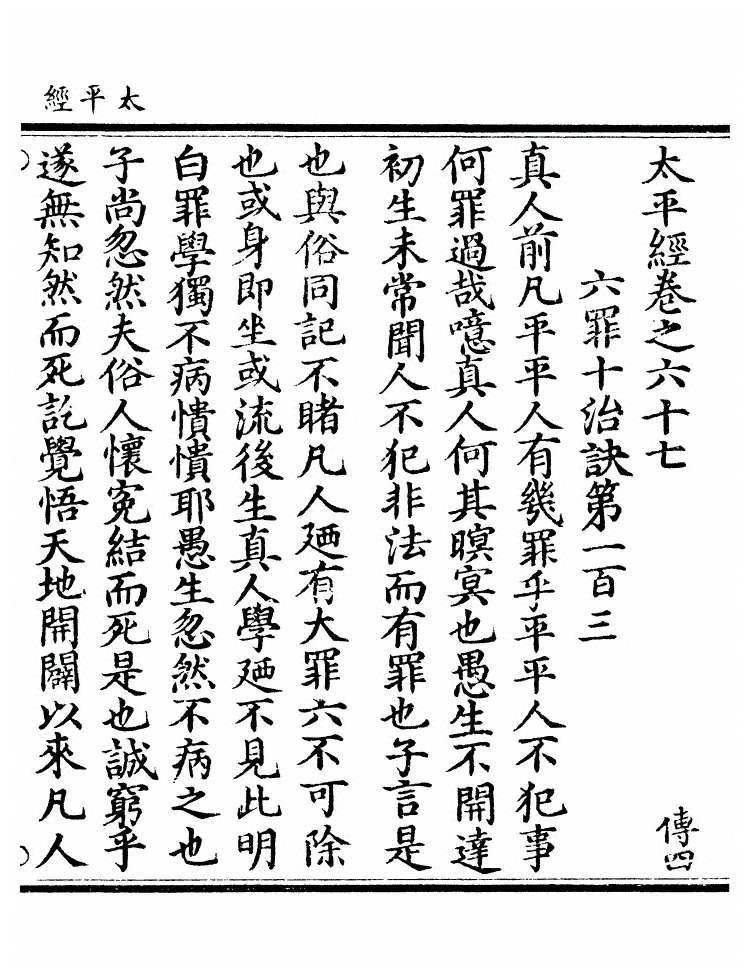 太平經
太平經卷之六十七
傳四
六罪十治訣第一百三
真人前凡平平人有幾罪乎平平人不犯事
何罪過哉噫真人何其暝冥也愚生不開達
初生未常聞人不犯非法而有罪也子言是
也與俗同記不睹凡人廼有大罪六不可除
也或身即坐或流後生真人學廼不見此明
白罪學獨不病憒憒耶愚生忽然不病之也
子尚忽然夫俗人懷冤結而死是也誠窮乎
遂無知然而死訖覺悟天地開闢以來凡人